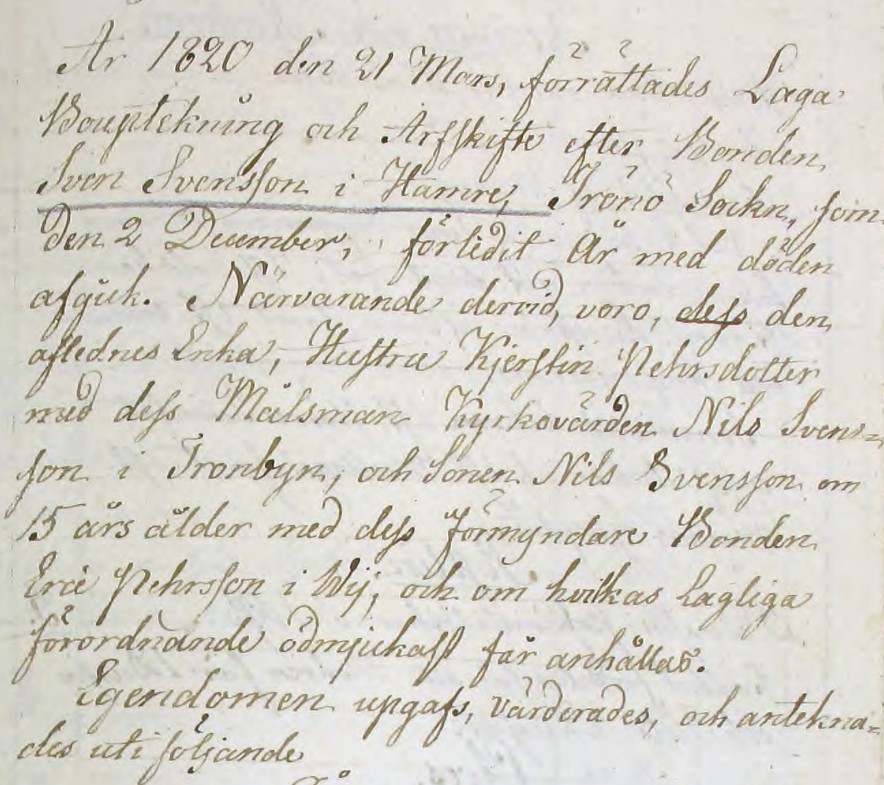 År 1820 den 21 Mars, förrättades Laga
Bouptekning och Arfskifte efter Bonden
Sven Svensson i Hamre, Trönö Sockn, som
den 2 December, förledit År med döden
afgick. Närvarande dervid, voro, dess den
aflednes Enka, Hustru Kjerstin Pehrsdotter
med dess Målsman Kyrkovärden Nils Svens=
son i Tronbyn, och Sonen Nils Svensson om
15 års ålder med dess Förmyndare Bonden
Eric Pehrsson i Wij, och om hvilkas Lagliga
förordnande ödmjukast får anhållas.
Egendomen upgafs, värderades, och antekna=
des uti följande